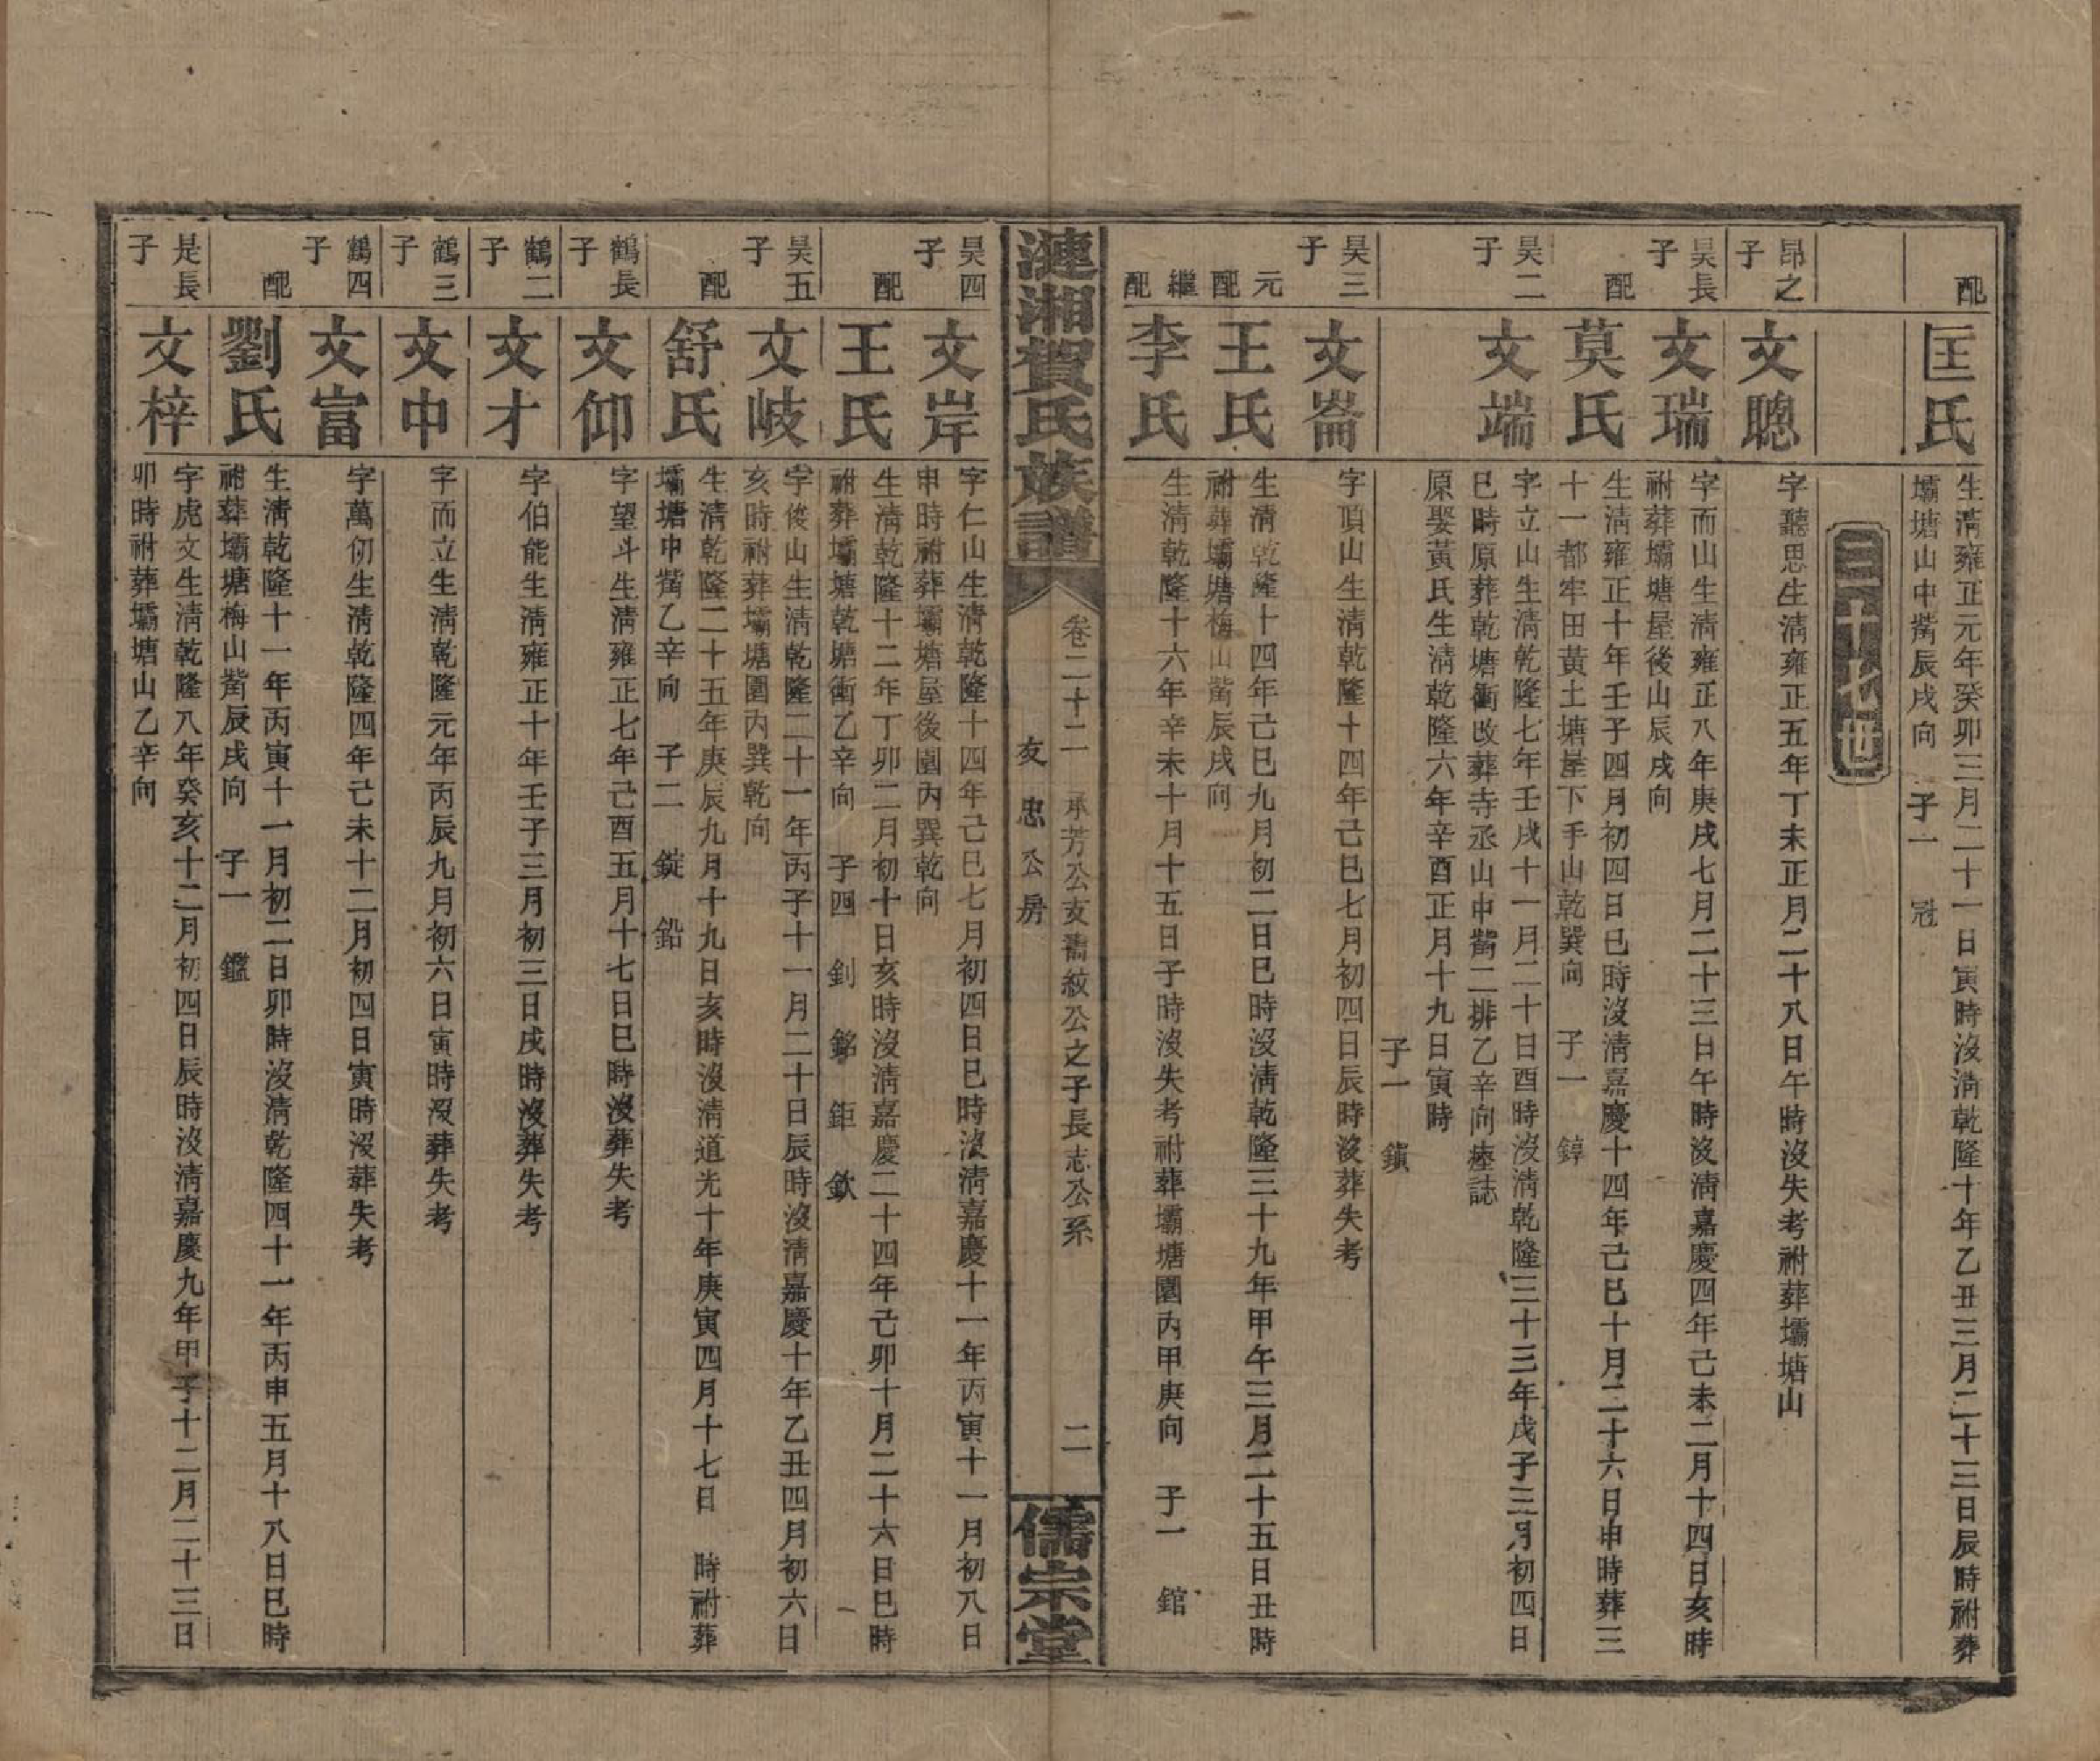 配
匡氏
生淸雍正元年癸卯三月二十一日寅時沒淸乾隆十年乙丑三月二十三日辰時祔葬
壩塘山中嘴辰戌向　子一　冠
三十七世
昂之子
文聰
字聽思生淸雍正五年丁未正月二十八日午時沒失考祔葬壩塘山
昊長子
文瑞
字而山生淸雍正八年庚戌七月二十三日午時沒淸嘉慶四年己未二月十四日亥時
祔葬壩塘屋後山辰戌向
配
莫氏
生淸雍正十年壬子四月初四日巳時沒淸嘉慶十四年己巳十月二十六日申時葬三
十一都牢田黃土塘屋下手山乾巽向　子一　錞
昊二子
文端
字立山生淸乾隆七年壬戌十一月二十日酉時沒淸乾隆三十三年戊子三月初四日
巳時原葬乾塘衝改葬寺丞山中嘴二排乙辛向塟誌
原娶黃氏生淸乾隆六年辛酉正月十九日寅時
子一　鎭
昊三子
文崙
字頂山生淸乾隆十四年己巳七月初四日辰時沒葬失考
元配
王氏
生淸乾隆十四年己巳九月初二日巳時沒淸乾隆三十九年甲午三月二十五日丑時
祔葬壩塘梅山嘴辰戌向
繼配
李氏
生淸乾隆十六年辛未十月十五日子時沒失考祔葬壩塘園內甲庚向　子一　錧
漣湘賀氏族譜
卷二十二　承芳公支喬紋公之子長志公系
友忠公房
二
儒宗堂
昊四子
文岸
字仁山生淸乾隆十四年己巳七月初四日巳時沒淸嘉慶十一年丙寅十一月初八日
申時祔葬壩塘屋後園內巽乾向
配
王氏
生淸乾隆十二年丁卯二月初十日亥時沒淸嘉慶二十四年己卯十月二十六日巳時
祔葬壩塘乾塘衝乙辛向　子四　釗　銘　鉅　欽
昊五子
文岐
字俊山生淸乾隆二十一年丙子十一月二十日辰時沒淸嘉慶十年乙丑四月初六日
亥時祔葬壩塘園內巽乾向
配
舒氏
生淸乾隆二十五年庚辰九月十九日亥時沒淸道光十年庚寅四月十七日　時祔葬
壩塘中嘴乙辛向　子二　錠　鉛
鶴長子
文仰
字望斗生淸雍正七年己酉五月十七日巳時沒葬失考
鶴二子
文才
字伯能生淸雍正十年壬子三月初三日戌時沒葬失考
鶴三子
文中
字而立生淸乾隆元年丙辰九月初六日寅時沒葬失考
鶴四子
文富
字萬仞生淸乾隆四年己未十二月初四日寅時沒葬失考
配
劉氏
生淸乾隆十一年丙寅十一月初二日卯時沒淸乾隆四十一年丙申五月十八日巳時
祔葬壩塘梅山嘴辰戌向　子一　鑑
是長子
文梓
字虎文生淸乾隆八年癸亥十二月初四日辰時沒淸嘉慶九年甲子十二月二十三日
卯時祔葬壩塘山乙辛向